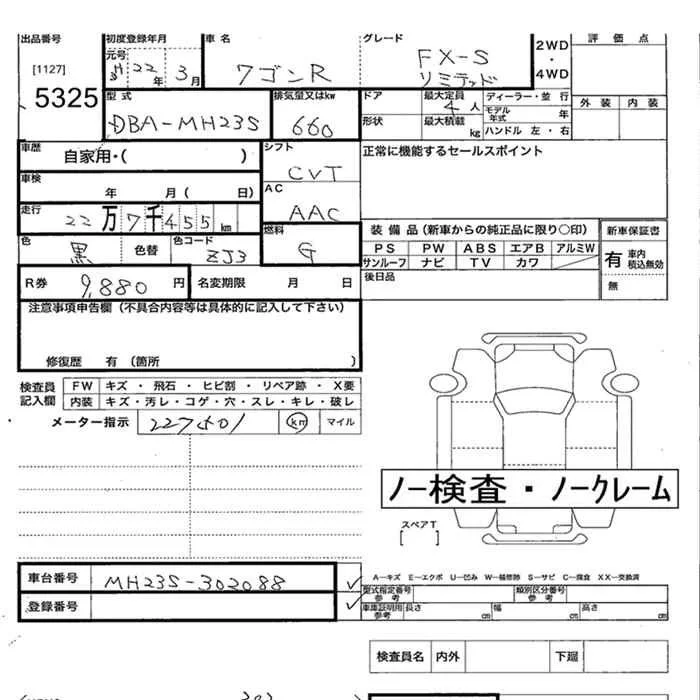 出品番号 初度登録年月 車名 グレード 評価点
[1127] 元号 H 22年 3月 ワゴンR FX-S リミテッド 2WD・4WD
5325 型式 排気量又はkw ドア 最大定員 4人 ディーラー・並行 外装 内装
DBA-MH23S 660 形状 最大積載 kg モデル年式 年 ハンドル 左・右
車歴 自家用・( ) シフト CVT 正常に機能するセールスポイント
車検 年 月( 日) AC AAC
走行 22万7千455km 燃料 G 装備品(新車からの純正品に限り○印) 新車保証書
色 黒 色替 色コード ZJ3 PS PW ABS エアB アルミW 有 車内積込無効
サンルーフ ナビ TV カワ
R券 9,880円 名変期限 月 日 後日品 無
注意事項申告欄(不具合内容等は具体的に記入して下さい)
修復歴 有(箇所 )
検査員記入欄 FW キズ・飛石・ヒビ割・リペア跡・X要
内装 キズ・汚レ・コゲ・穴・スレ・キレ・破レ
メーター指示 km マイル
ノー検査・ノークレーム
スペアT
[ ]
車台番号 MH23S-302088 ✓
登録番号 ✓
A―キズ E―エクボ U―凹み W―補修跡 S―サビ C―腐食 XX―交換済
型式指定番号 参考 類別区分番号 参考
車庫証明用 参考 長さ cm 幅 cm 高さ cm
検査員名 内外 下廻